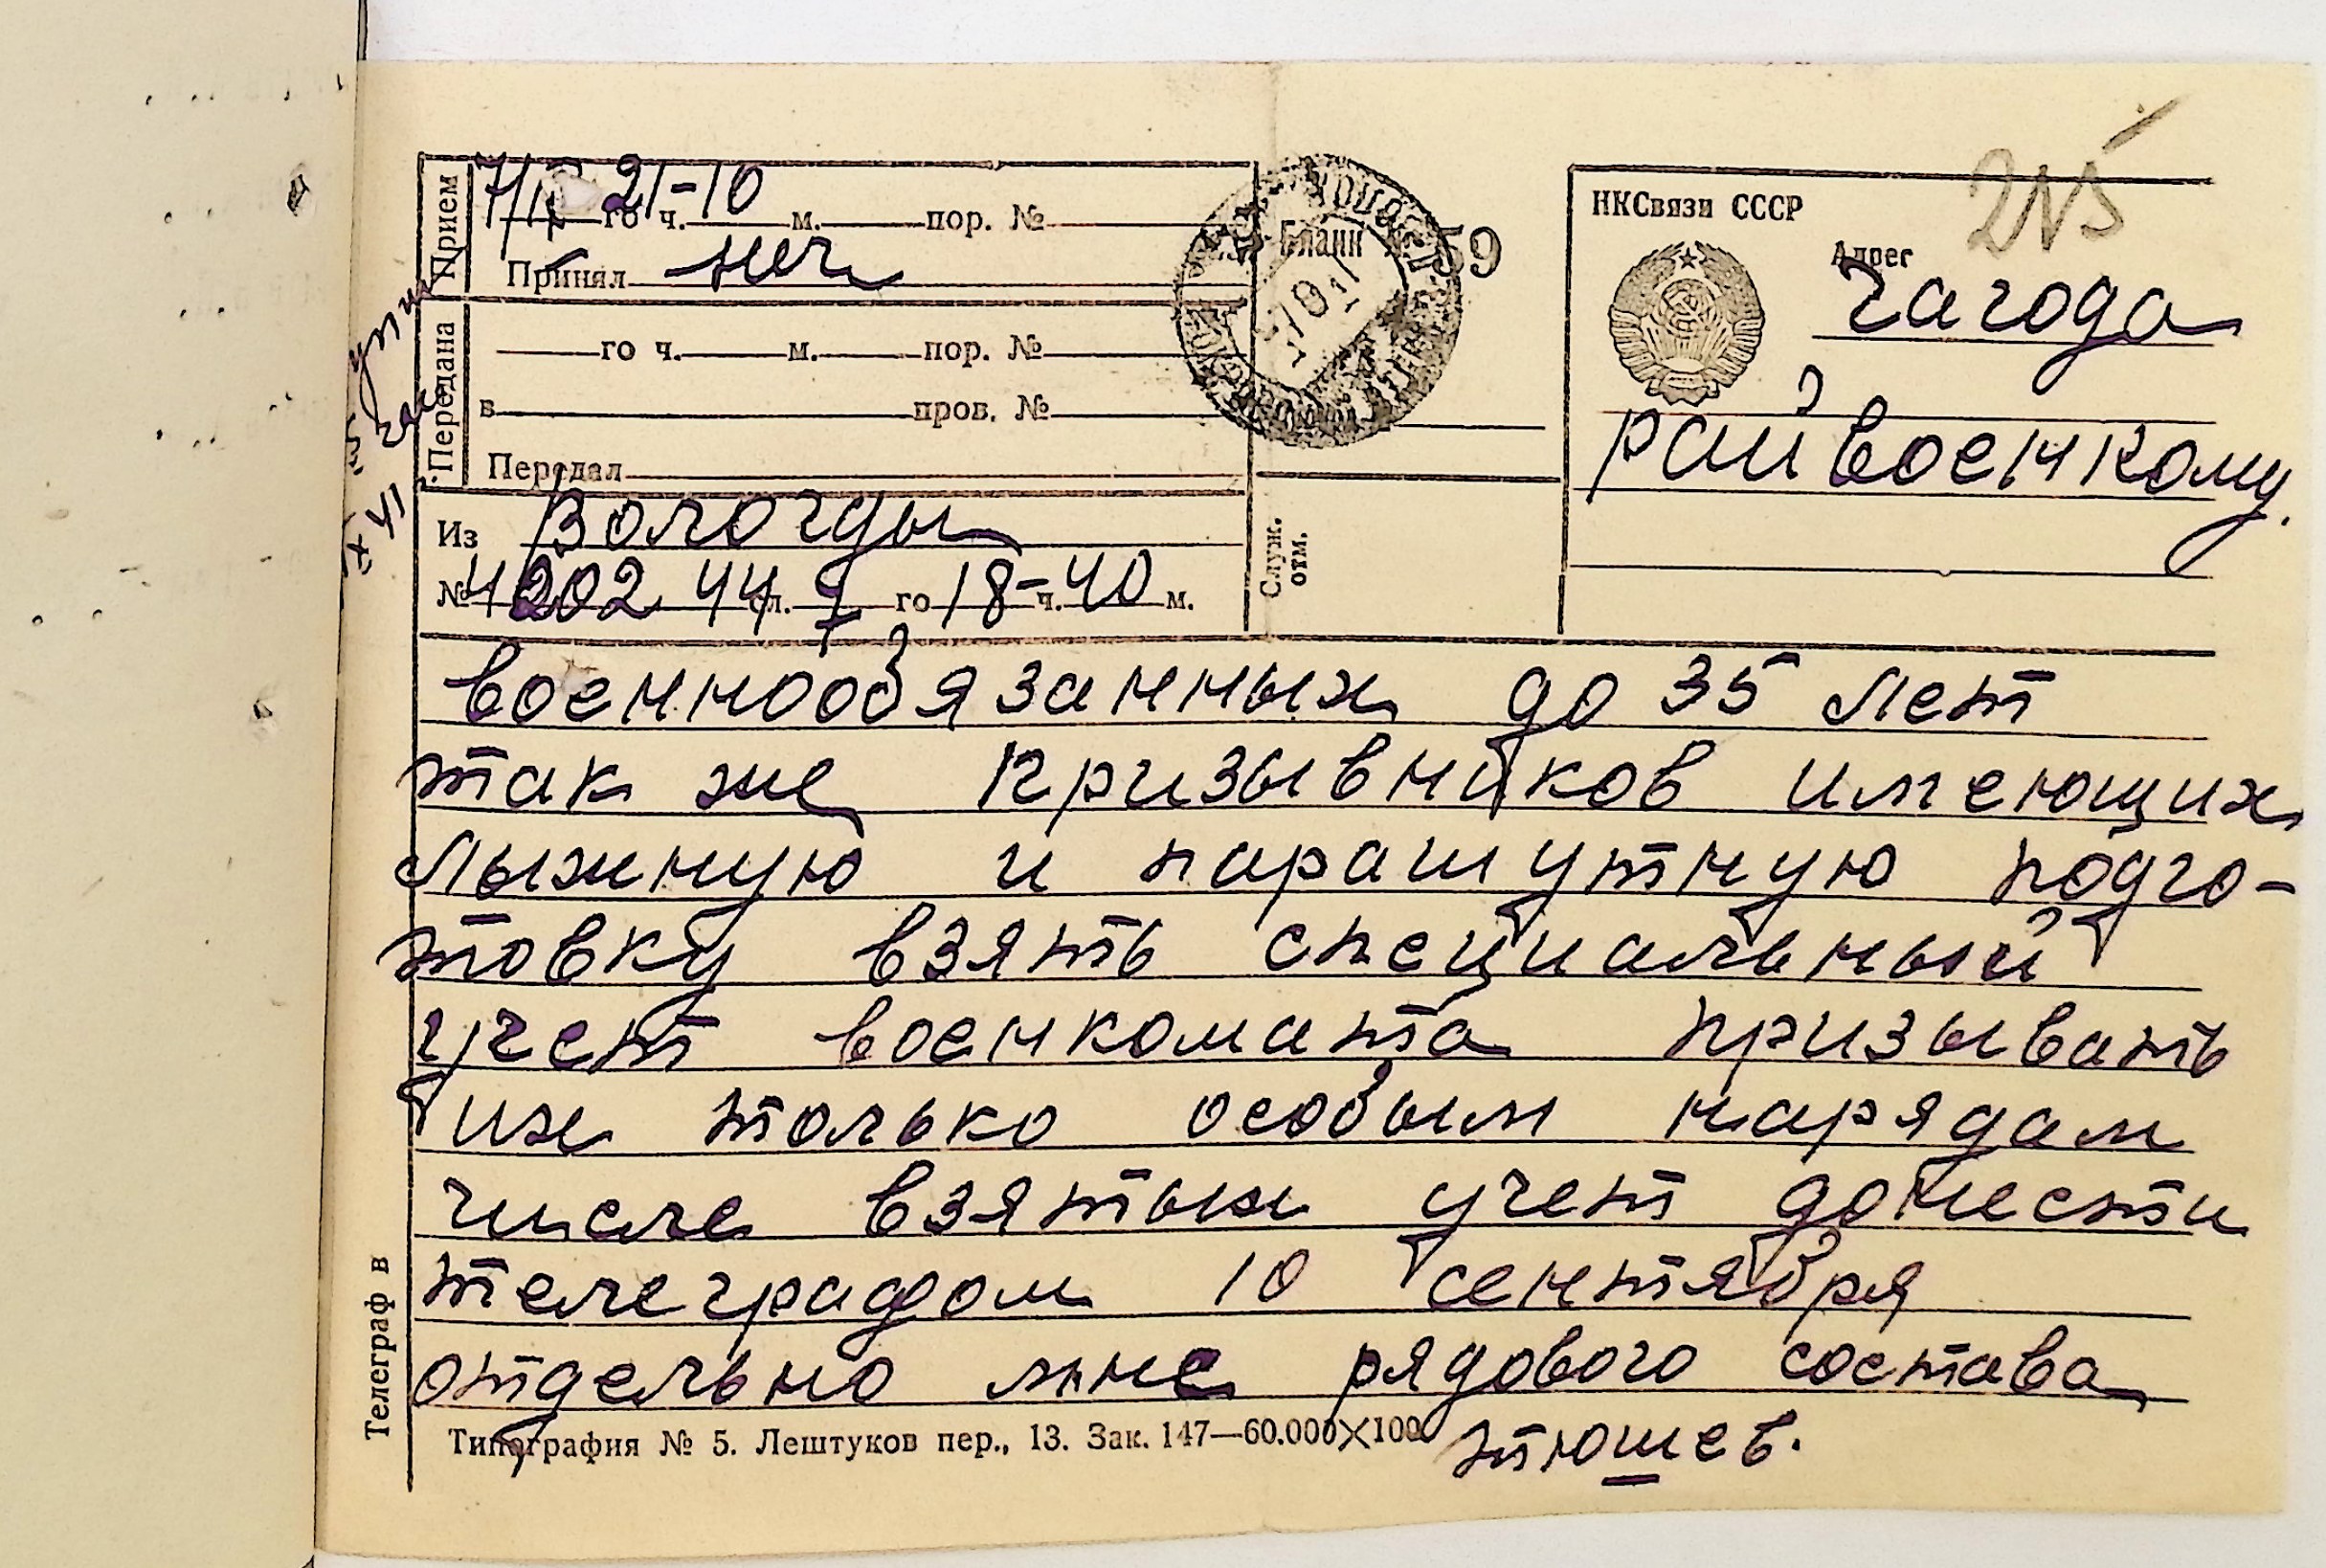 215
Прием
7/IX 21-10
го ч. м. пор. №
Принял
Бланк № 59
НКСвязи СССР
Адрес
Чагода
райвоенкому.
Передана
го ч. м. пор. №
в пров. №
Передал
Из Вологды
№ 4202 44 сл. 7 го 18-ч. 40 м.
Служ. отм.
военнообязанных до 35 лет
так же призывников имеющих
лыжную и парашутную подго-
товку взять специальный
учет военкомата призывать
их только особым нарядам
числе взятых учет донести
телеграфом 10 сентября
отдельно мне рядового состава
тюшев.
Телеграф в
Типография № 5. Лештуков пер., 13. Зак. 147—60.000×100